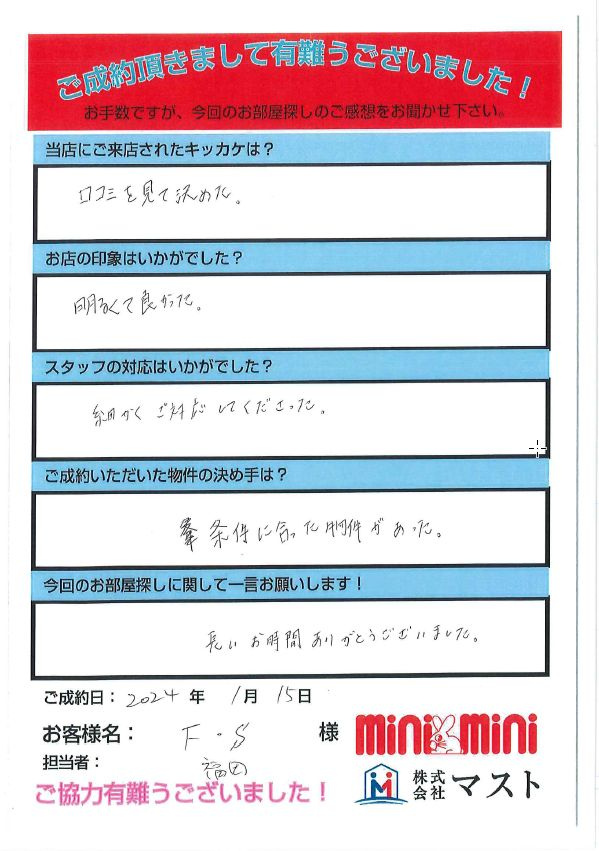 ご成約頂きまして有難うございました！
お手数ですが、今回のお部屋探しのご感想をお聞かせ下さい。
当店にご来店されたキッカケは？
口コミを見て決めた。
お店の印象はいかがでした？
明るくて良かった。
スタッフの対応はいかがでした？
細かくご対応してくださった。
ご成約いただいた物件の決め手は？
条件に合った物件があった。
今回のお部屋探しに関して一言お願いします！
長いお時間ありがとうございました。
ご成約日： 2024 年 1月 15日
お客様名： F・S 様
担当者： 福田
ご協力有難うございました！
mini mini
株式会社 マスト